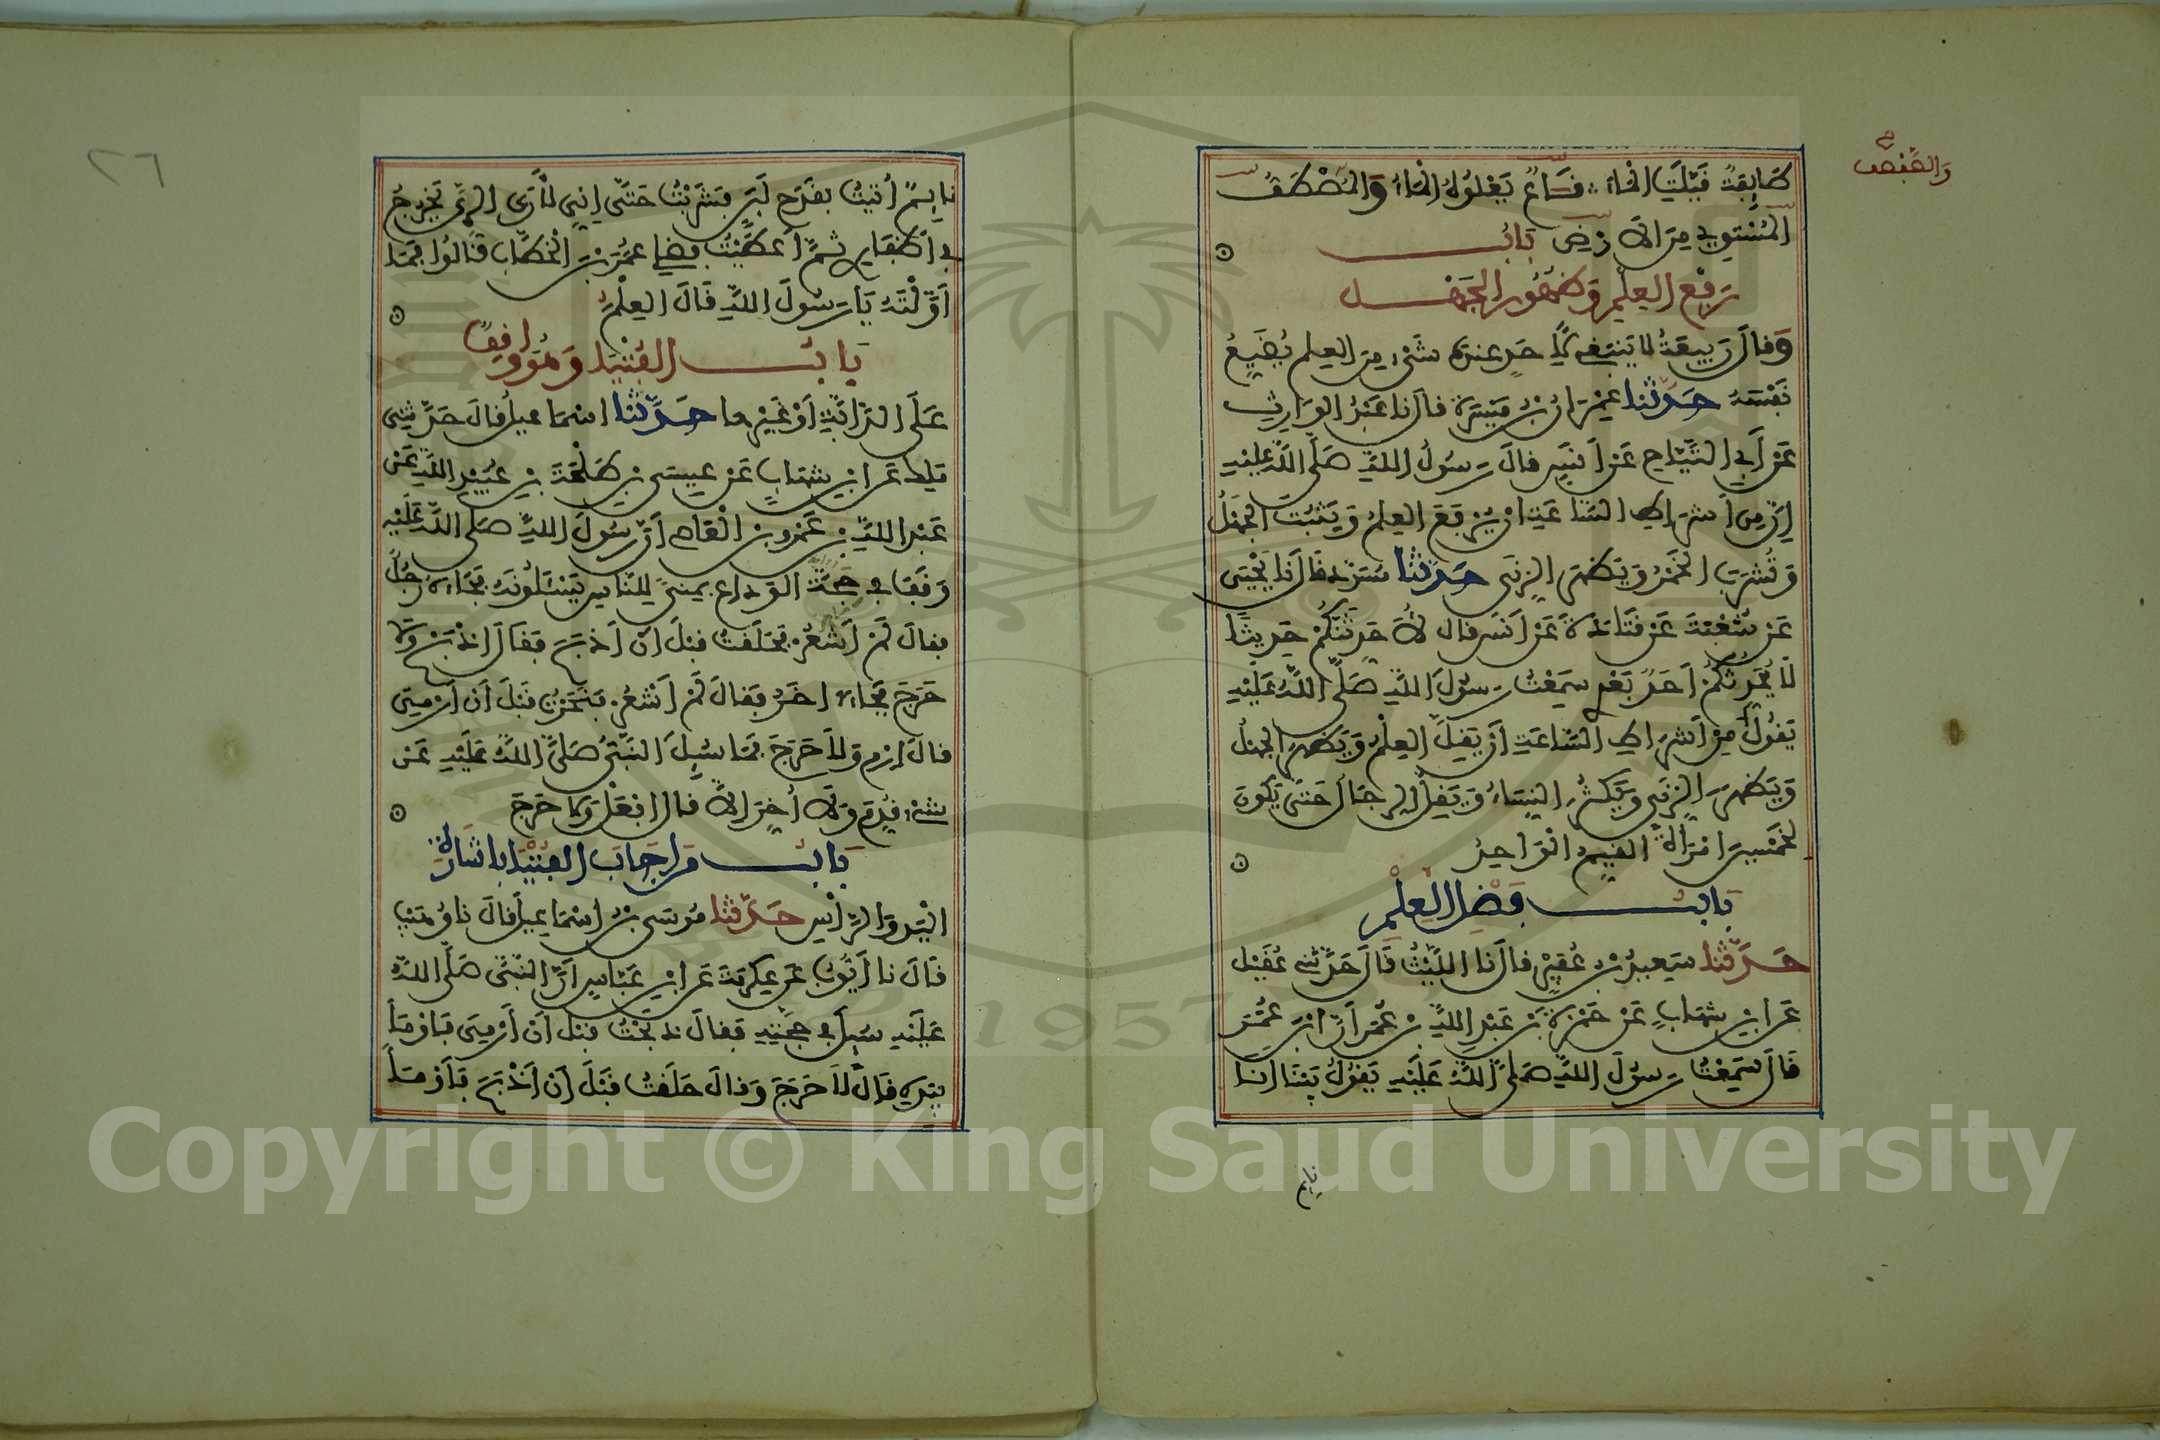 والصفصف
طايفة قيلت الماء قاع يعلوه الماء والصفصف
المستوي من الارض باب
رفع العلم وظهور الجهل
وقال ربيعة لا ينبغي لاحد عنده شيء من العلم يضيع
نفسه حدثنا عمران بن ميسرة قال نا عبد الوارث
عن أبي التياح عن أنس قال رسول الله صلى الله عليه
إن من أشراط الساعة ان يرفع العلم ويثبت الجهل
وتشرب الخمر ويظهر الزنى حدثنا مسدد قال نا يحيى
عن شعبة عن قتادة عن أنس قال لأحدثنكم حديثا
لا يحدثكم أحد بعدي سمعت رسول الله صلى الله عليه
يقول من أشراط الساعة أن يقل العلم ويظهر الجهل
ويظهر الزنى ويكثر النساء ويقل الرجال حتى يكون
لخمسين امرأة القيم الواحد
باب فضل العلم
حدثنا سعيد بن عفير قال نا الليث قال حدثني عقيل
عن ابن شهاب عن حمزة بن عبد الله بن عمر أن ابن عمر
قال سمعت رسول الله صلى الله عليه يقول بينا انا
نايم
٢٦
نايم أتيت بقدح لبن فشربت حتى إني لأرى الري يخرج
في أظفاري ثم أعطيت فضلي عمر بن الخطاب قالوا فما
أولته يا رسول الله قال العلم
باب الفتيا وهو واقف
على الدابة أو غيرها حدثنا اسماعيل قال حدثني
ملك عن ابن شهاب عن عيسى بن طلحة بن عبيد الله عن
عبد الله بن عمرو بن العاص أن رسول الله صلى الله عليه
وقف في حجة الوداع بمنى للناس يسئلونه فجاءه رجل
فقال لم أشعر فحلقت قبل أن أذبح فقال اذبح ولا
حرج فجاء اخر فقال لم أشعر فنحرت قبل أن أرمي
قال ارم ولا حرج فما سيل النبي صلى الله عليه عن
شيء قدم ولا أخر الا قال افعل ولا حرج
باب من اجاب الفتيا باشارة
اليد والرأس حدثنا موسى بن اسماعيل قال نا وهيب
قال نا أيوب عن عكرمة عن ابن عباس أن النبي صلى الله
عليه سيل في حجته فقال ذبحت قبل أن أرمي فاومأ
بيده قال لا حرج وقال حلقت قبل أن أذبح فأومأ
Copyright © King Saud University
1957